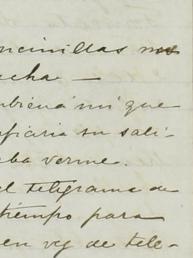 ncinillas me
cha —
mbien á mi que
nfiaria su sali-
ba verme.
el telegrama de
tiempo para
en vez de tele-